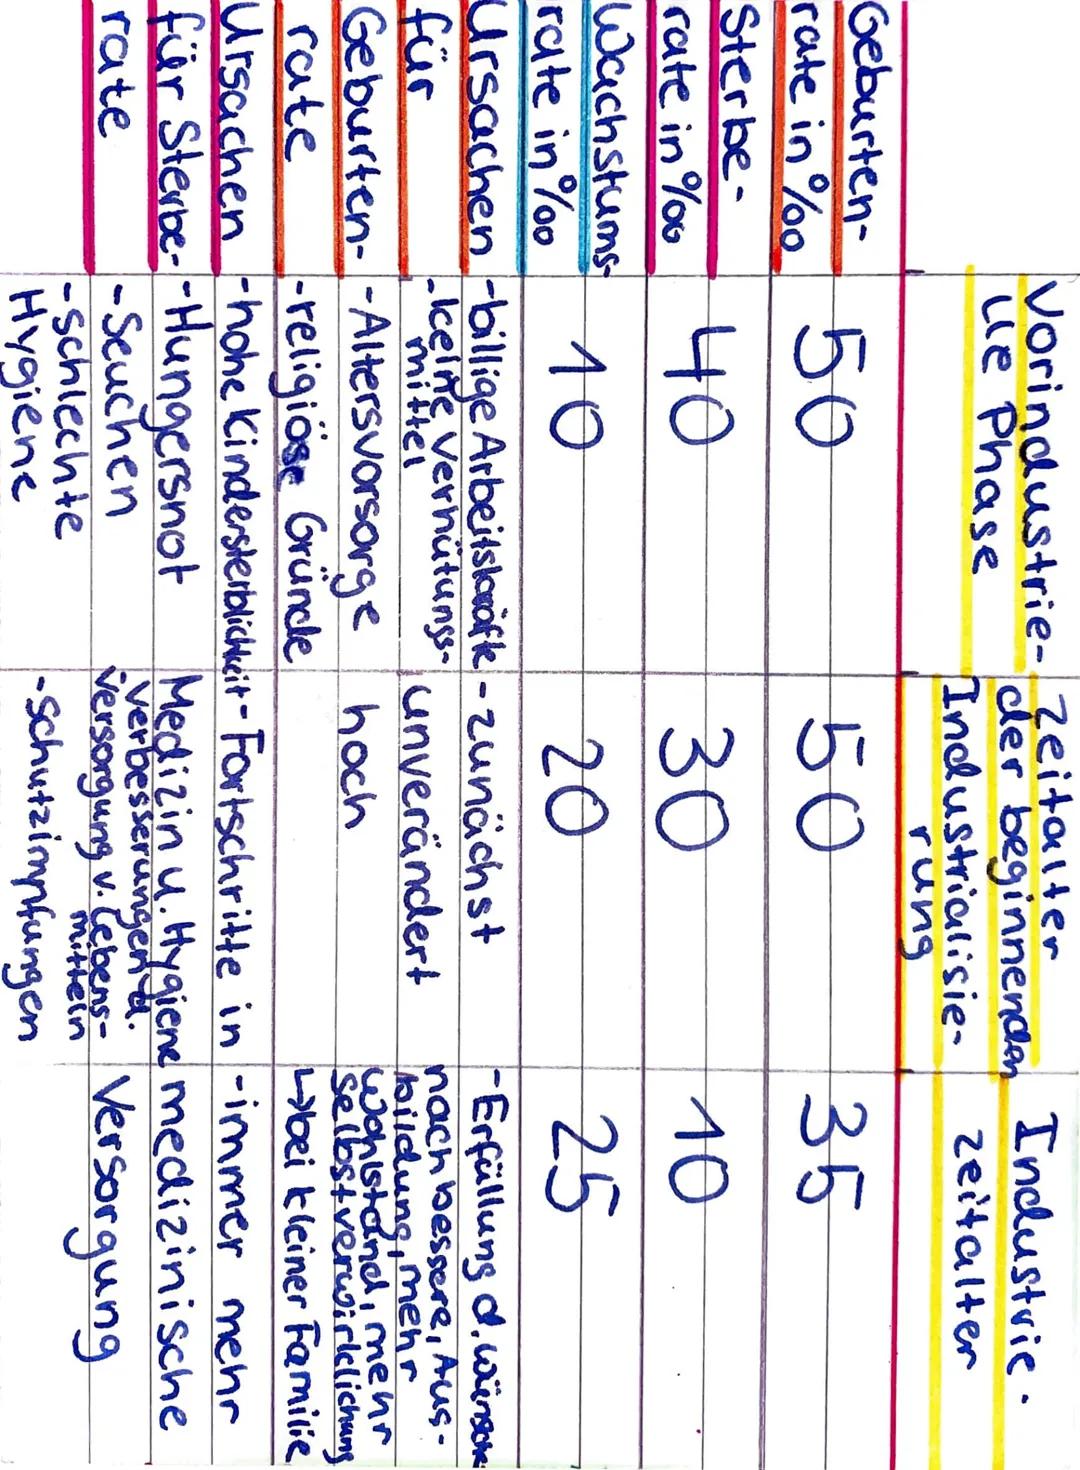 Vorindustrie-
lle Phase
Zeitalter
der beginnenden
Industrialisie-
rung
Industrie-
zeitalter
Geburten-
rate in ‰
50
50
35
Sterbe-
rate in ‰
40
30
10
Wachstums-
rate in ‰
10
20
25
Ursachen
für
Geburten-
rate
-billige Arbeitskräfte
-keine Verhütungs-
mittel
-Altersvorsorge
-religiöse Gründe
-zunächst
unverändert
hoch
-Erfüllung d. Wünsche
nach bessere, Aus-
bildung, mehr
Wohlstand, mehr
selbstverwirklichung
↳bei kleiner Familie
Ursachen
für Sterbe-
rate
-hohe Kindersterblichkeit
-Hungersnot
-Seuchen
-schlechte
Hygiene
-Fortschritte in
Medizin u. Hygiene
-Verbesserungen d.
Versorgung v. Lebens-
mitteln
-Schutzimpfungen
-immer mehr
medizinische
Versorgung